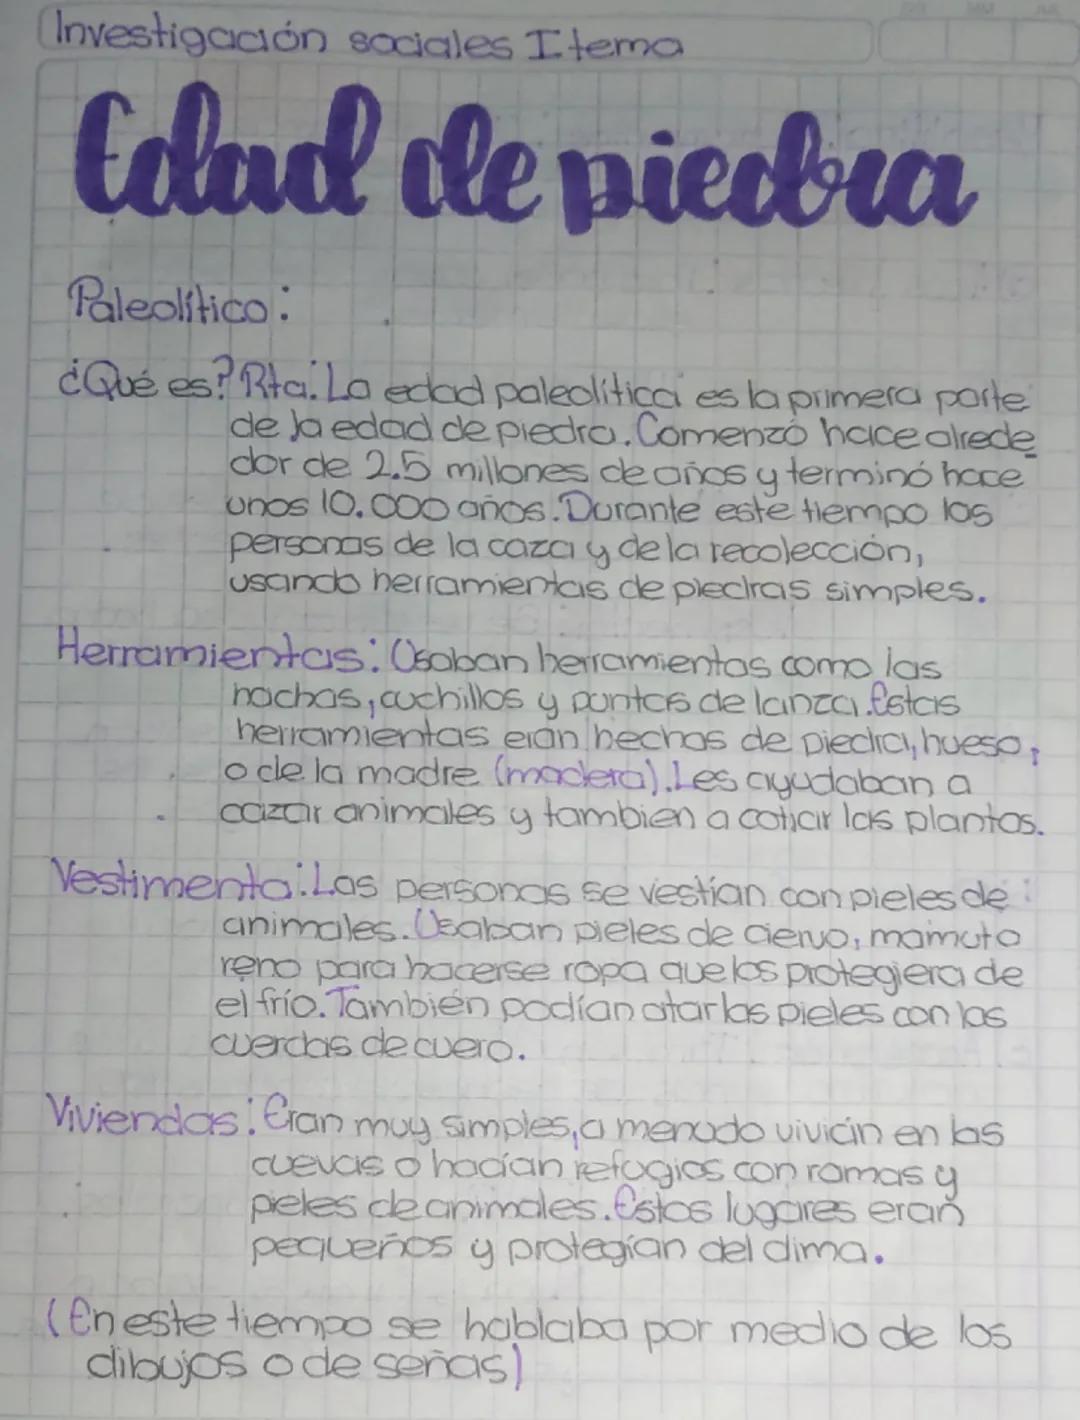 Investigación sociales I tema
Edad de piedra
Paleolítico:
¿Qué es? Rta: La edad paleolítica es la primera parte
de la edad de piedra. Comenzó hace alrede
dor de 2.5 millones de años y terminó hace
unos 10.000 años. Durante este tiempo los
personas de la caza y de la recolección,
usando herramientas de piedras simples.
Herramientas: Usaban herramientas como las
hachas, cuchillos y puntas de lanza. Estas
herramientas eran hechas de piedra, hueso,
o de la madre (madera). Les ayudaban a
cazar animales y tambien a coticir las plantas.
Vestimenta: Las personas se vestían con pieles de
animales. Usaban pieles de ciervo, mamuto
reno para hacerse ropa que los protegiera de
el frío. También podían atar las pieles con las
cuerdas de cuero.
Viviendas: Eran muy simples, a menudo vivián en las
cuevas o hacían refugios con ramas y
pieles de animales. Estos lugares eran
pequeños y protegían del clima.
(En este tiempo se hablaba por medio de los
dibujos o de señas)